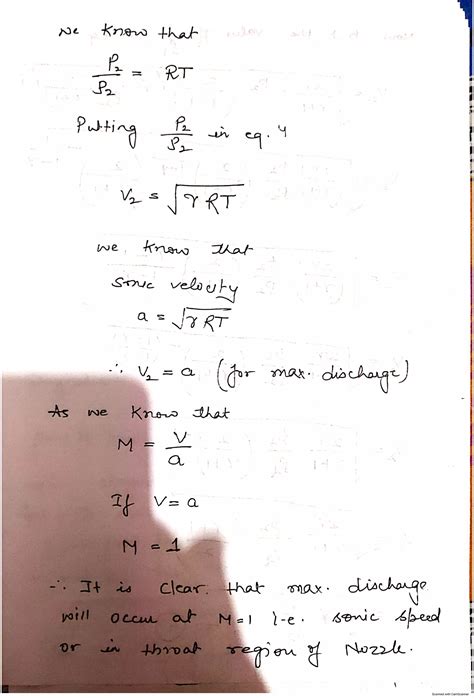 we know that
P₂/ρ₂ = RT
Putting P₂/ρ₂ in eq. 4
V₂ = √γRT
we know that
sonic velocity
a = √γRT
∴ V₂ = a (for max. discharge)
As we know that
M = V/a
If V = a
M = 1
∴ It is clear that max. discharge
will occur at M=1 i-e. sonic speed
or in throat region of Nozzle.
Scanned with CamScanner